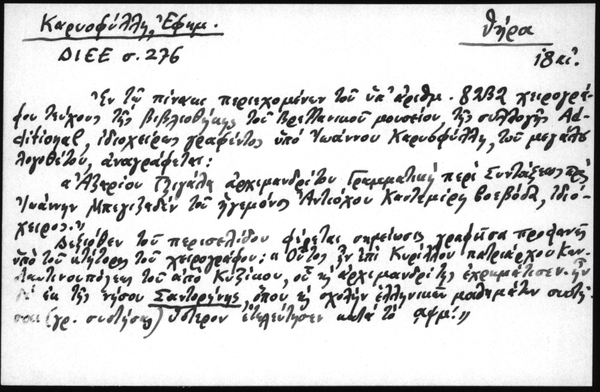 Καρυοφύλλη, Ἐφημ. Θήρα
ΔΙΕΕ σ. 276 18 αἰ.
Ἐν τῷ πίνακι περιεχομένων τοῦ ὑπ' ἀριθμ. 8232 χειρογρά-
φου τεύχους τῆς βιβλιοθήκης τοῦ Βρεττανικοῦ μουσείου, τῆς συλλογῆς Ad-
ditional, ἰδιοχείρως γραφέντος ὑπό Ἰωάννου Καρυοφύλλη, τοῦ μεγάλου
λογοθέτου, ἀναγράφεται:
"Ἀζαρίου Τζιγάλα ἀρχιμανδρίτου Γραμματική περί Συντάξεως πρός
Ἰωάννην Μπεγιζεδέν τοῦ ἡγεμόνος Ἀντιόχου Καντεμίρη βοεβόδα, ἰδιό-
χειρος."
Δεξιόθεν τοῦ περισελίδου φέρεται σημείωσις γραφεῖσα προφανῶς
ὑπό τοῦ κτήτορος τοῦ χειρογράφου: "Οὗτος ἦν ἐπί Κυρίλλου πατριάρχου Κων-
σταντινουπόλεως τοῦ ἀπό Κυζίκου, οὗ καί ἀρχιμανδρίτης ἐχρημάτισεν. ἦν
δέ ἐκ τῆς νήσου Σαντορήνης, ὅπου καί σχολήν ἑλληνικῶν μαθημάτων συστή-
σαι (γρ. συστήσας) ὕστερον ἐτελεύτησεν κατά τό αψμ'."